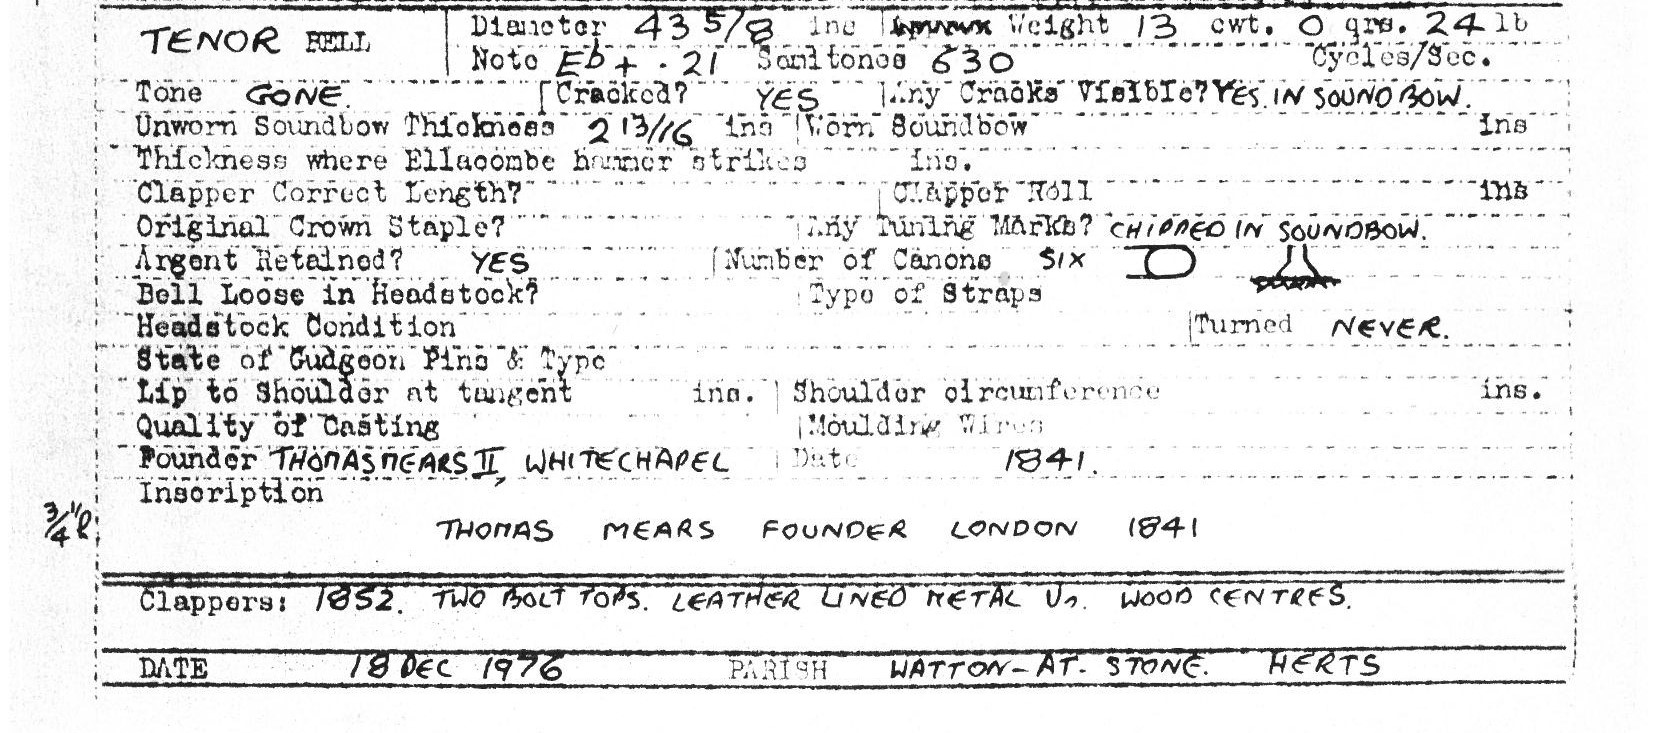 TENOR BELL Diameter 43 5/8 ins Weight 13 cwt. 0 qrs. 24 lb
Note Eb + .21 Semitones 630 Cycles/Sec.
Tone GONE. Cracked? YES Any Cracks Visible? YES. IN SOUNDBOW.
Unworn Soundbow Thickness 2 13/16 ins Worn Soundbow ins
Thickness where Ellacombe hammer strikes ins.
Clapper Correct Length? Clapper Roll ins
Original Crown Staple? Any Tuning Marks? CHIPPED IN SOUNDBOW.
Argent Retained? YES Number of Canons SIX
Bell Loose in Headstock? Type of Straps
Headstock Condition Turned NEVER.
State of Gudgeon Pins & Type
Lip to Shoulder at tangent ins. Shoulder circumference ins.
Quality of Casting Moulding Wires
Founder THOMAS MEARS II, WHITECHAPEL Date 1841.
Inscription
3/4"
THOMAS MEARS FOUNDER LONDON 1841
Clappers: 1852. TWO BOLT TOPS. LEATHER LINED METAL Us. WOOD CENTRES.
DATE 18 DEC 1976 PARISH WATTON-AT-STONE. HERTS